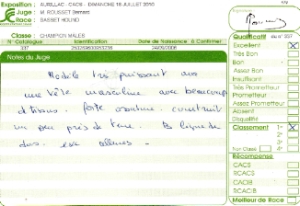 Exposition : AURILLAC - CACIB - DIMANCHE 18 JUILLET 2010
Juge : M. ROUSSET Bernard
Race : BASSET HOUND
Classe : CHAMPION MALES
N° Catalogue Identification Date de Naissance à Confirmer
337
Notes du Juge
Modèle très puissant avec
une tête masculine avec beaucoup
forte ossature construit
un peu près de terre. ligne de
dos
Qualificatif
Excellent X
Très Bon
Bon
Assez Bon
Insuffisant
Très Prometteur
Prometteur
Assez Prometteur
Absent
Disqualifié
Classement 1° X
2°
3°
4°
Non Classé
Récompense
CACS
RCACS
CACIB
RCACIB
Meilleur de Race